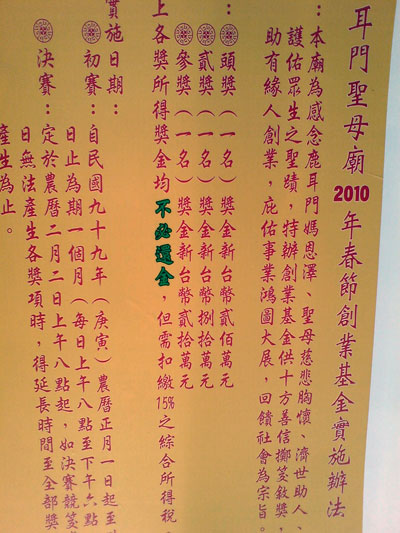 耳門聖母廟2010年春節創業基金實施辦法
：本廟為感念鹿耳門媽恩澤、聖母慈悲胸懷、濟世助人、
護佑眾生之聖蹟，特辦創業基金供十方善信擲筊敘獎，
助有緣人創業，庇佑事業鴻圖大展，回饋社會為宗旨。
：頭獎（一名）獎金新台幣貳佰萬元
貳獎（一名）獎金新台幣捌拾萬元
參獎（一名）獎金新台幣貳拾萬元
上各獎所得獎金均不必還金，但需扣繳15%之綜合所得稅，
實施日期：
初賽：自民國九十九年（庚寅）農曆正月一日起至
日止為期一個月（每日上午八點至下午六點
決賽：定於農曆二月二日上午八點起，如決賽競筊
日無法產生各獎項時，得延長時間至全部獎
產生為止。